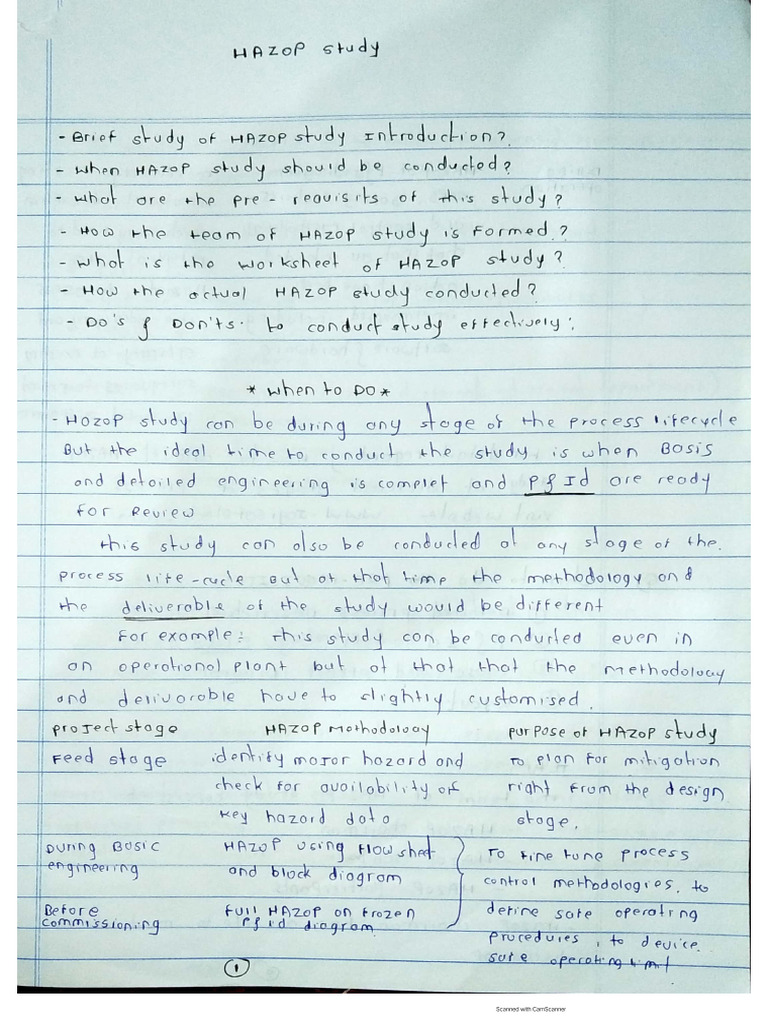 HAZOP study
- Brief study of HAZOP study Introduction?
- When HAZOP study should be conducted?
- What are the pre-requisits of this study?
- How the team of HAZOP study is formed?
- What is the worksheet of HAZOP study?
- How the actual HAZOP study conducted?
- Do's & Don'ts. to conduct study effectively:
* when to DO *
- HOZOP study can be during any stage of the process lifecycle
But the ideal time to conduct the study is when Basis
and detailed engineering is complet and P&Id are ready
for Review
this study can also be conducted at any stage of the.
process life-cycle But at that time the methodology and
the deliverable of the study would be different
for example: this study can be conducted even in
an operational plant but at that that the methodology
and delivarable have to slightly customised.
project stage HAZOP Methodology purpose of HAZOP study
Feed stage identify major hazard and To plan for mitigation
check for availability of right from the design
key hazard data stage.
During Basic HAZOP using flow sheet To fine tune process
engineering and block diagram control methodologies, to
Before full HAZOP on frozen define safe operating
commissioning P&id diagram procedures, to device
safe operating limit
1
Scanned with CamScanner